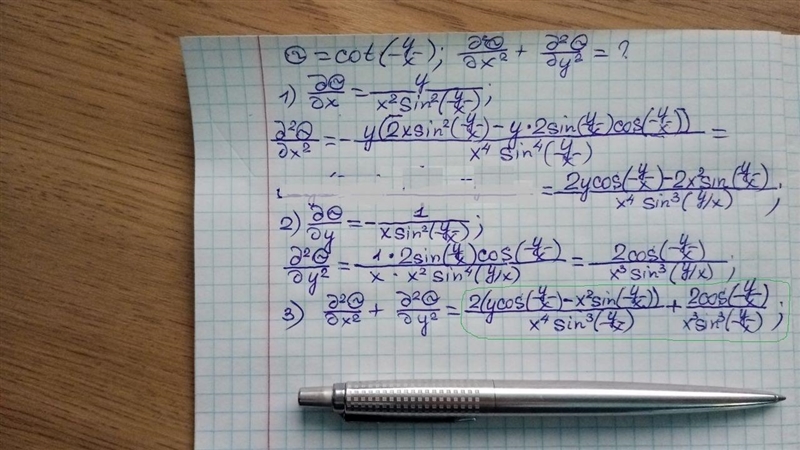 Q = cot(y/x); ∂²Q/∂x² + ∂²Q/∂y² = ?
1) ∂Q/∂x = y/(x² sin²(y/x));
∂²Q/∂x² = -y(2x sin²(y/x) - y·2sin(y/x)cos(y/x))/(x⁴ sin⁴(y/x)) =
= (2y cos(y/x) - 2x² sin(y/x))/(x⁴ sin³(y/x));
2) ∂Q/∂y = -1/(x sin²(y/x));
∂²Q/∂y² = (1·2sin(y/x)cos(y/x))/(x·x² sin⁴(y/x)) = 2cos(y/x)/(x³ sin³(y/x));
3) ∂²Q/∂x² + ∂²Q/∂y² = 2(y cos(y/x) - x² sin(y/x))/(x⁴ sin³(y/x)) + 2cos(y/x)/(x³ sin³(y/x));